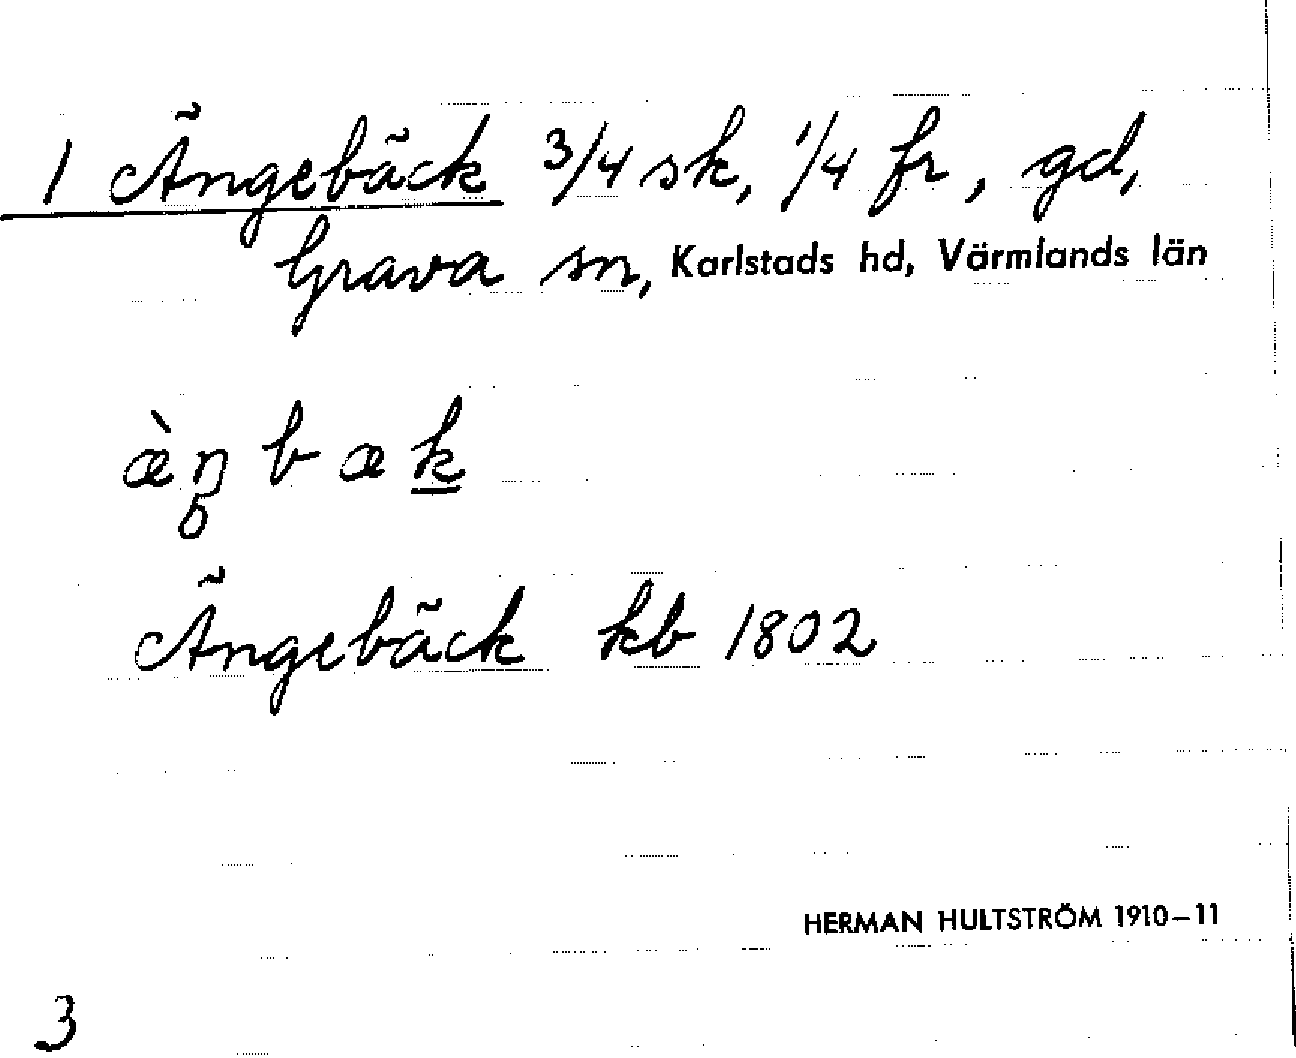 1 Ängebäck 3/4 sk, 1/4 fr, gd,
Grava sn, Karlstads hd, Värmlands län
æ̀ŋ̥bæk̲
Ängebäck kb 1802
HERMAN HULTSTRÖM 1910–11
3